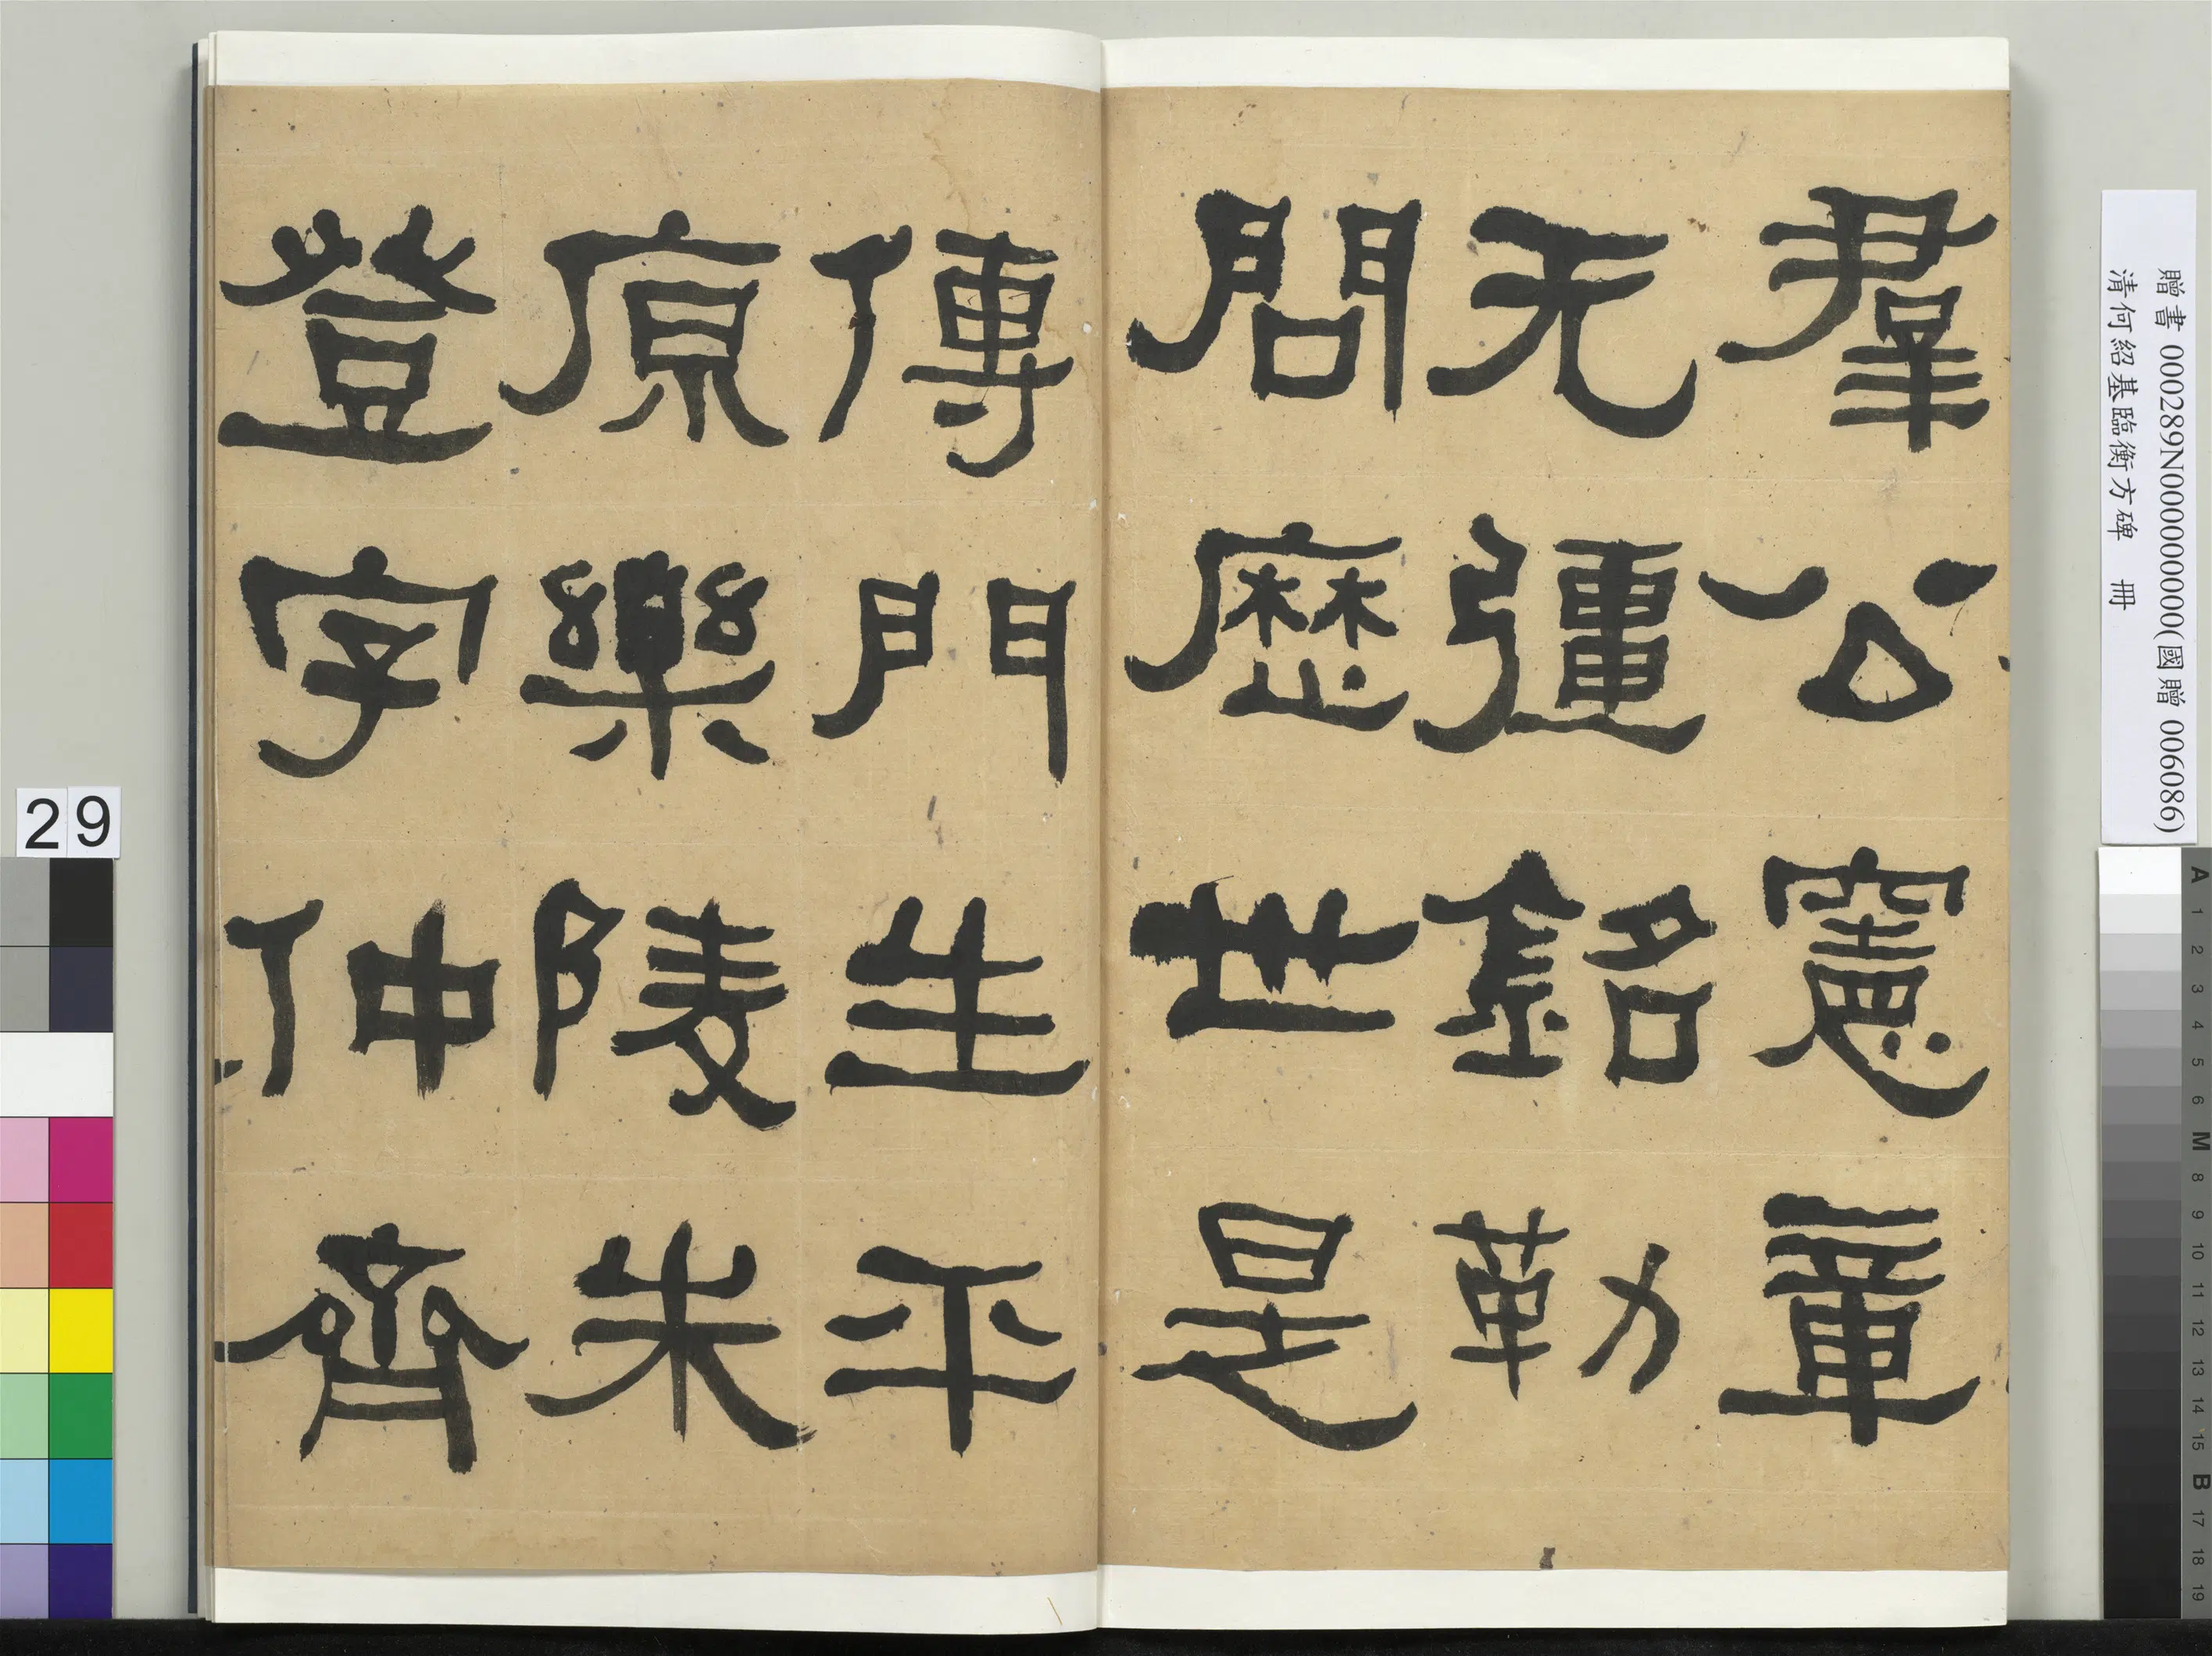 羣公憲章
无彊銘勒
問歷世是
傳門生平
原樂陵朱
登字仲齊
贈書 000289N000000000(國贈 006086)
清何紹基臨衡方碑 冊
29
A 1 2 3 4 5 6 M 8 9 10 11 12 13 14 15 B 17 18 19